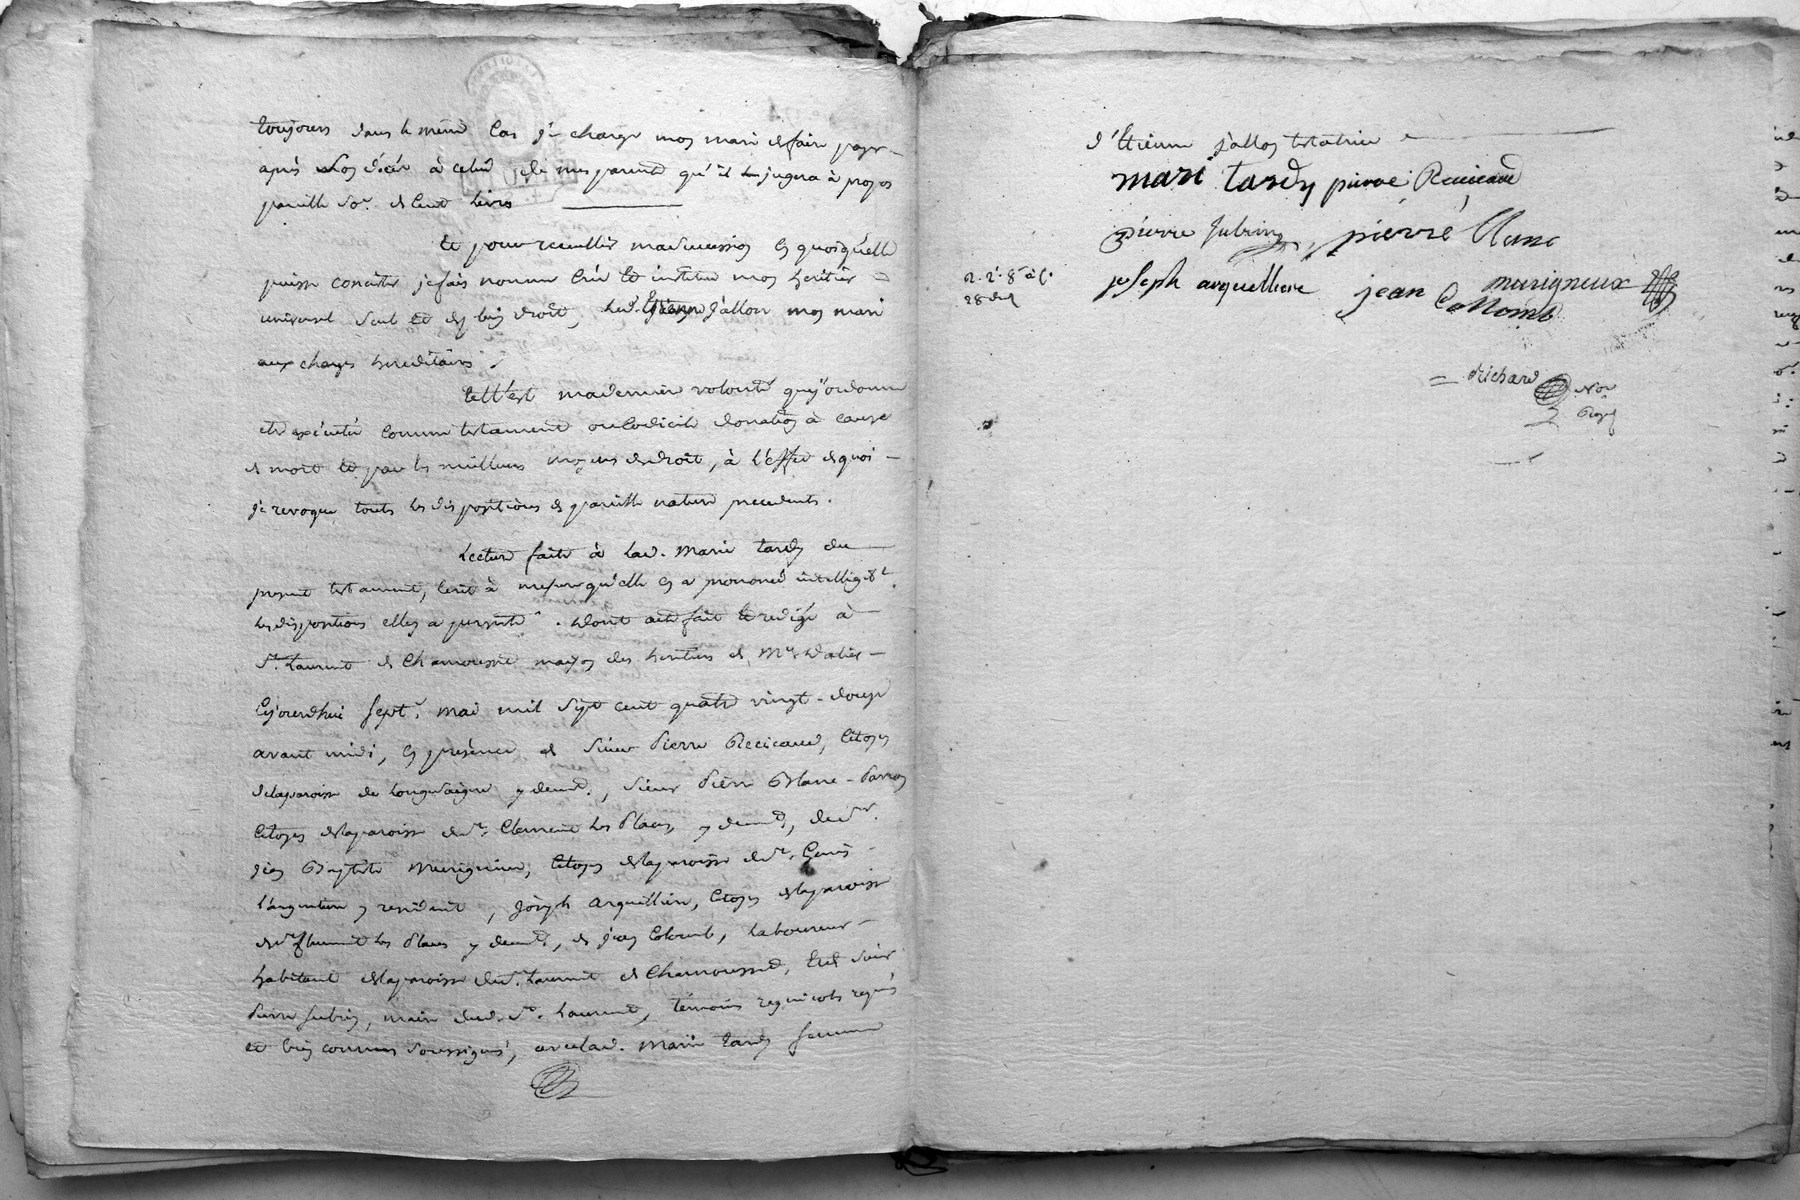 toujours dans le même Cas je charge mon mari de faire payer
après son décès à celui de mes parents qu'il jugera à propos
pareille so.e de Cent livres
Et pour recueillir ma succession En quoi qu'elle
puisse Consister je fais nomme Crée Et institue mon héritier
universel seul Et de bien droit, led. Etienne Jallon mon mari
aux charges héréditaires
telle est ma dernière volonté que j'ordonne
être exécutée Comme testament ou Codicile donation à cause
de mort Et par les meilleurs moyens de droit, à l'effet de quoi
je revoque toutes les dispositions de pareille nature precedentes.
Lecture faite à lad. Marie tardy du
present testament, écrit à mesure qu'elle En a prononcé intelligibt
les dispositions elle y a persisté. Dont acte fait Et redigé à
St. Laurent de Chamousset maison des heritiers de Mr
Cejourd'hui sept.e mai mil sept cent quatre vingt-douze
avant midi, En présence de sieur Pierre Recicaud, Citoyen
de la paroisse de Longesaigne y demt., sieur Pierre Blanc
Citoyen de la paroisse de St. Clement les Places, y demt, de sr.
Jean Baptiste Murigneux, Citoyen de la paroisse de St. Genis
l'argentiere y residant, Joseph Arquilliere, Citoyen de la paroisse
de St Clement les Places y demt, de Jean Colomb, laboureur
habitant de la paroisse de St. Laurent de Chamousset, Et de sieur
Pierre Subrin, maire dud. St. Laurent, témoins requis
et bien connus soussignés, avec lad. Marie tardy femme
d'Etienne Jallon testatrice
mari tardy pierre Recicaud
pierre Subrin, pierre Blanc
joseph arquilliere jean Collomb murigneux
28
Richard Nore
Royal